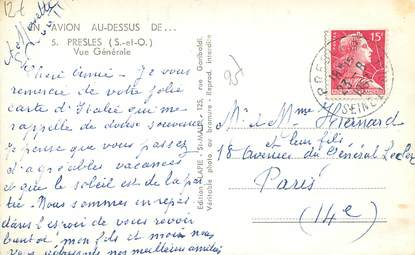 EN AVION AU-DESSUS DE...
5. PRESLES (S.-et-O.)
Vue Générale
Chère amie - Je vous
remercie de votre jolie
carte d'Italie qui me
rappelle de doux souvenirs
Je pense que vous passez
d'agréables vacances
et que le soleil est de la par-
tie - Nous sommes en repos
dans l'espoir de vous revoir
bientôt, mon fils et moi
vous adressons nos meilleures amitiés
Edition LAPIE - St-MAUR - 125, rue Garibaldi.
Véritable photo au bromure - Reprod. interdite
15F
PRESLES
SEINE
M. et Mme
et leur fils
18 avenue du Général Leclerc
Paris
(14e)